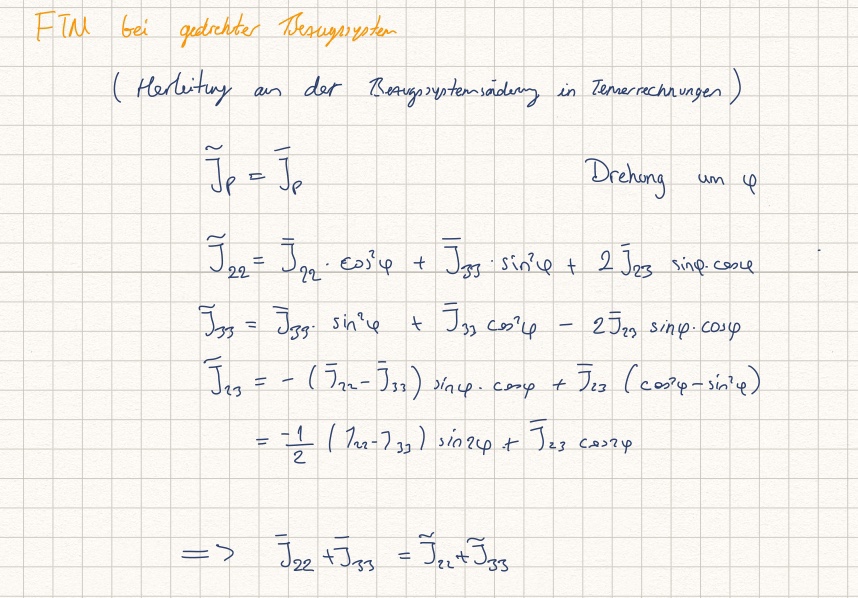 FTM bei gedrehter Bezugssystem
(Herleitung an der Bezugssystemsänderung in Tensorrechnungen)
J̃_p = J̄_p Drehung um φ
J̃_22 = J̄_22 · cos²φ + J̄_33 · sin²φ + 2 J̄_23 sinφ · cosφ
J̃_33 = J̄_33 · sin²φ + J̄_33 cos²φ − 2J̄_23 sinφ · cosφ
J̃_23 = − (J̄_22 − J̄_33) sinφ · cosφ + J̄_23 (cos²φ − sin²φ)
= -1/2 (J_22 - J_33) sin2φ + J̄_23 cos2φ
=> J̄_22 + J̄_33 = J̃_22 + J̃_33